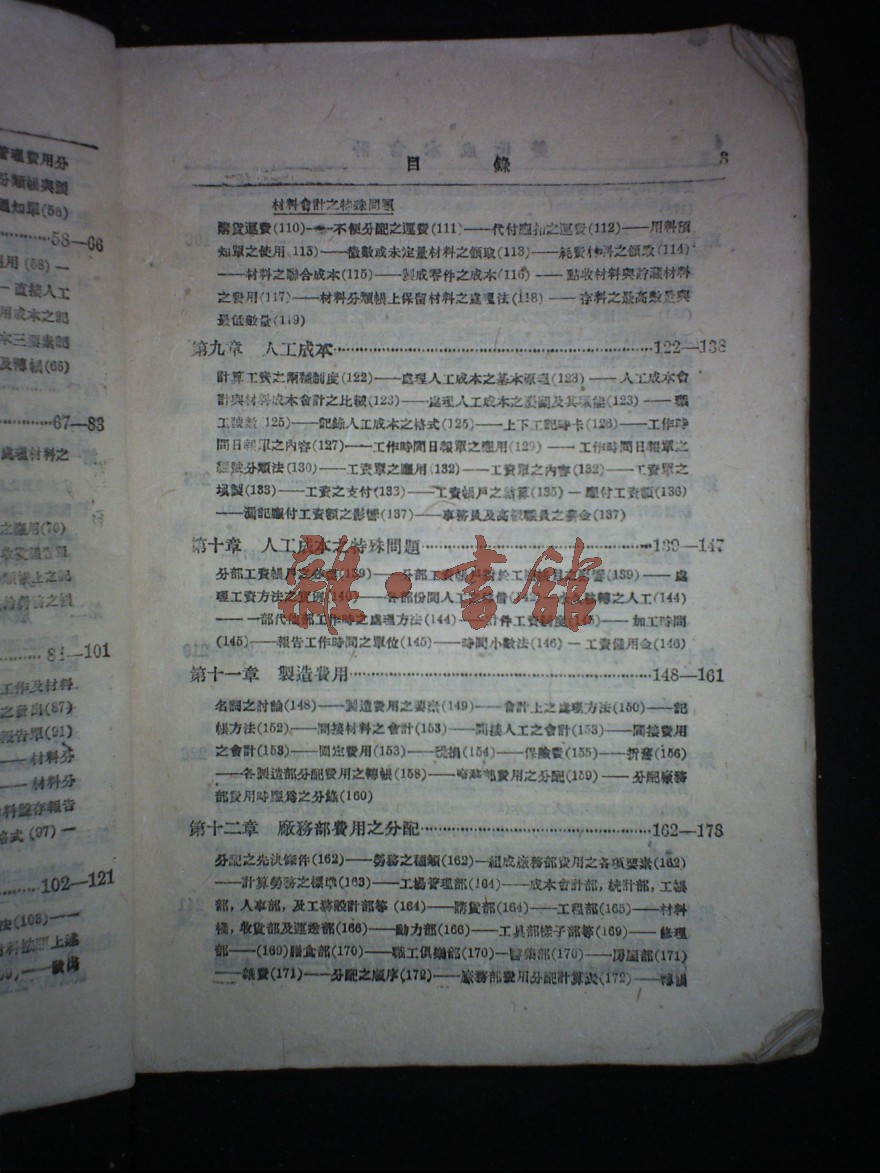 管理費用分
分類帳與調
通知單(58)
58—66
用(58)—
直接人工
用成本之記
本三要素記
及轉帳(66)
67—83
處理材料之
之應用(70)
84—101
工作及材料
之發出(87)
報告單(91)
——材料分
——材料分
料盤存報告
格式(97)—
102—121
目錄 3
材料會計之特殊問題
購貨運費(110)——不便分配之運費(111)——代付應扣之運費(112)——用料預
知單之使用(113)——散數或未定量材料之領取(113)——耗費材料之領取(114)
——材料之聯合成本(115)——製成零件之成本(116)——點收材料與貯藏材料
之費用(117)——材料分類帳上保留材料之處理法(118)——存料之最高數量與
最低數量(119)
第九章 人工成本 122—138
計算工資之兩種制度(122)——處理人工成本之基本原理(123)——人工成本會
計與材料成本會計之比較(123)——處理人工成本之機關及其職能(123)——職
工號數(125)——記錄人工成本之格式(125)——上下工記時卡(126)——工作時
間日報單之內容(127)——工作時間日報單之應用(129)——工作時間日報單之
編號分類法(130)——工資單之應用(132)——工資單之內容(132)——工資單之
填製(133)——工資之支付(133)——工資帳戶之結算(135)—應付工資額(136)
——漏記應付工資額之影響(137)——事務員及高級職員之薪金(137)
第十章 人工成本之特殊問題 139—147
分部工資帳戶之必需(139)——分部工資帳戶對於工廠之影響(139)——處
理工資方法之實例(140)——各部份間人工之(144)
——一部代他部工作時之處理方法(144)——計件工資制度(145)——加工時間
(145)——報告工作時間之單位(145)——時間小數法(146)—工資備用金(146)
第十一章 製造費用 148—161
名詞之討論(148)——製造費用之要素(149)——會計上之處理方法(150)——記
帳方法(152)——間接材料之會計(153)——間接人工之會計(153)——間接費用
之會計(153)——固定費用(153)——稅捐(154)——保險費(155)——折舊(156)
——各製造部分配費用之轉帳(158)——廠務部費用之分配(159)——分配廠務
部費用時應為之分錄(160)
第十二章 廠務部費用之分配 162—178
分配之先決條件(162)——勞務之種類(162)—組成廠務部費用之各項要素(162)
——計算勞務之標準(163)——工場管理部(164)——成本會計部,統計部,工帳
部,人事部,及工務設計部等(164)——購貨部(164)——工程部(165)——材料
棧,收貨部及運送部(166)——動力部(166)——工具部樣子部等(169)——修理
部——(169)膳食部(170)——職工俱樂部(170)—醫藥部(170)——房屋部(171)
——雜費(171)——分配之順序(172)——廠務部費用分配計算表(172)——轉帳
雜·書館